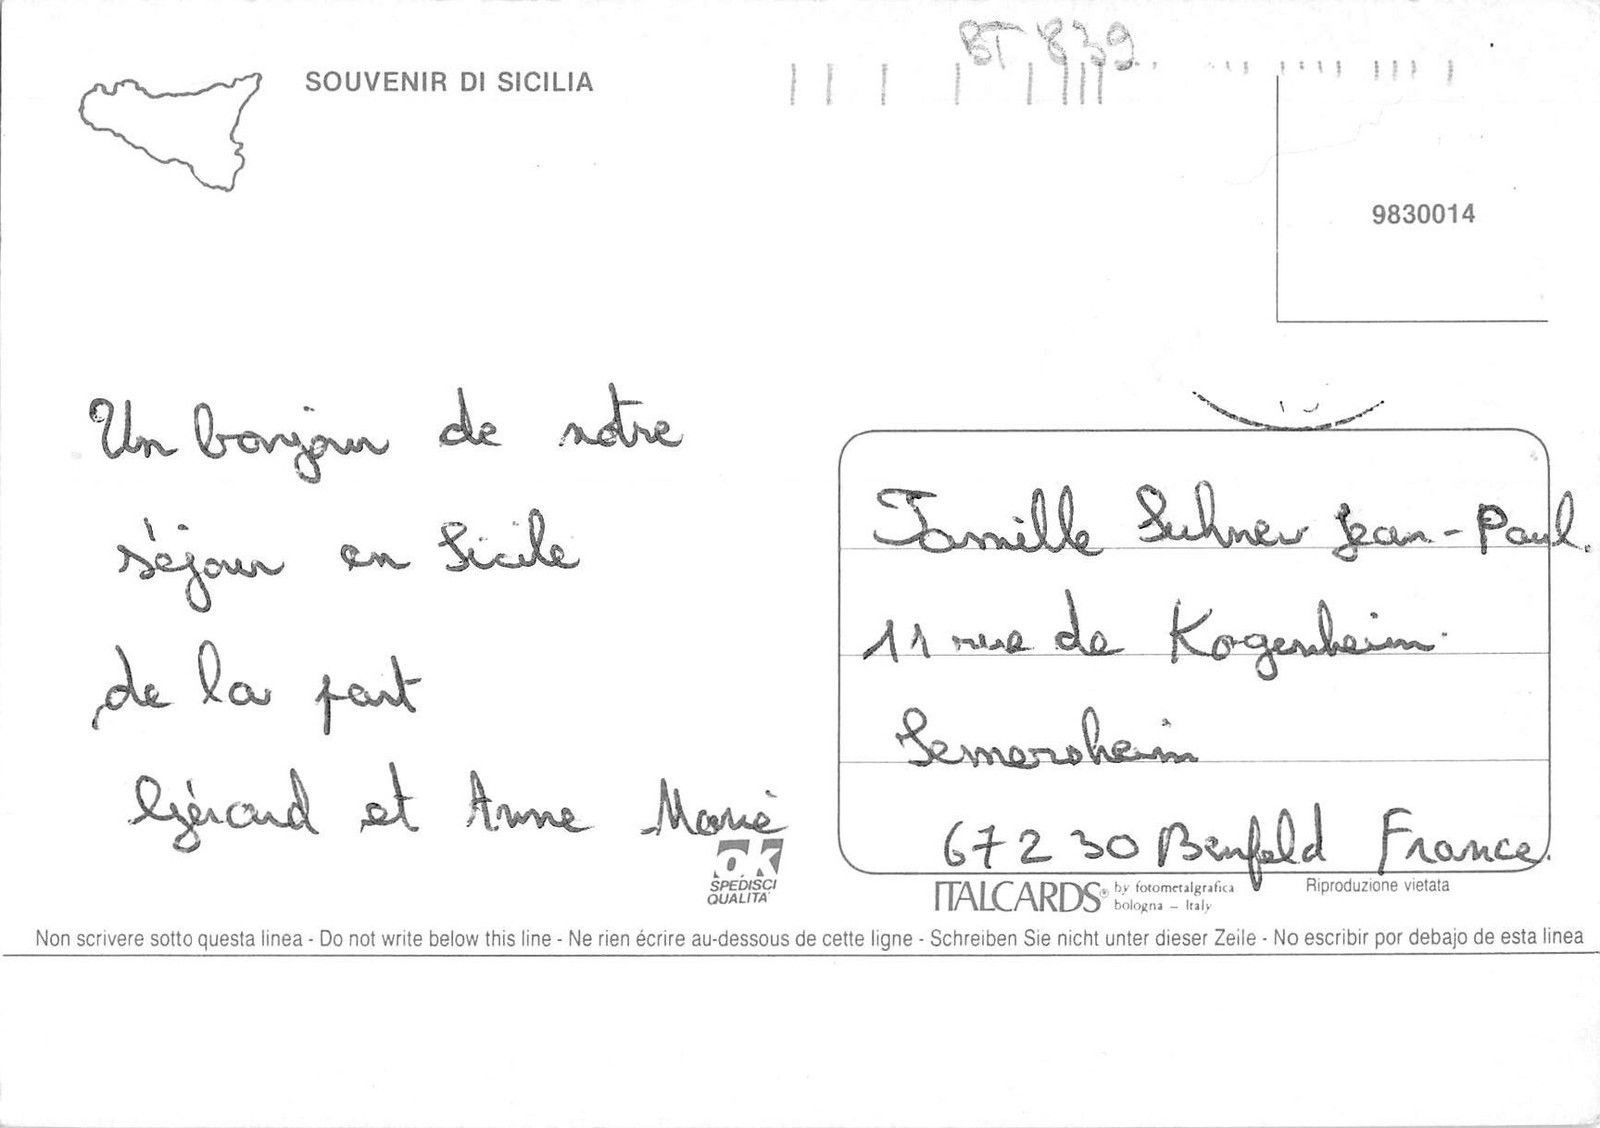 SOUVENIR DI SICILIA
BT 839
9830014
Un bonjour de notre
séjour en Sicile
de la part
Gérard et Anne Marie
Famille Suhner Jean-Paul.
11 rue de Kogenheim
Semersheim
67230 Benfeld France.
OK
SPEDISCI
QUALITA'
ITALCARDS® by fotometalgrafica
bologna - Italy
Riproduzione vietata
Non scrivere sotto questa linea - Do not write below this line - Ne rien écrire au-dessous de cette ligne - Schreiben Sie nicht unter dieser Zeile - No escribir por debajo de esta linea